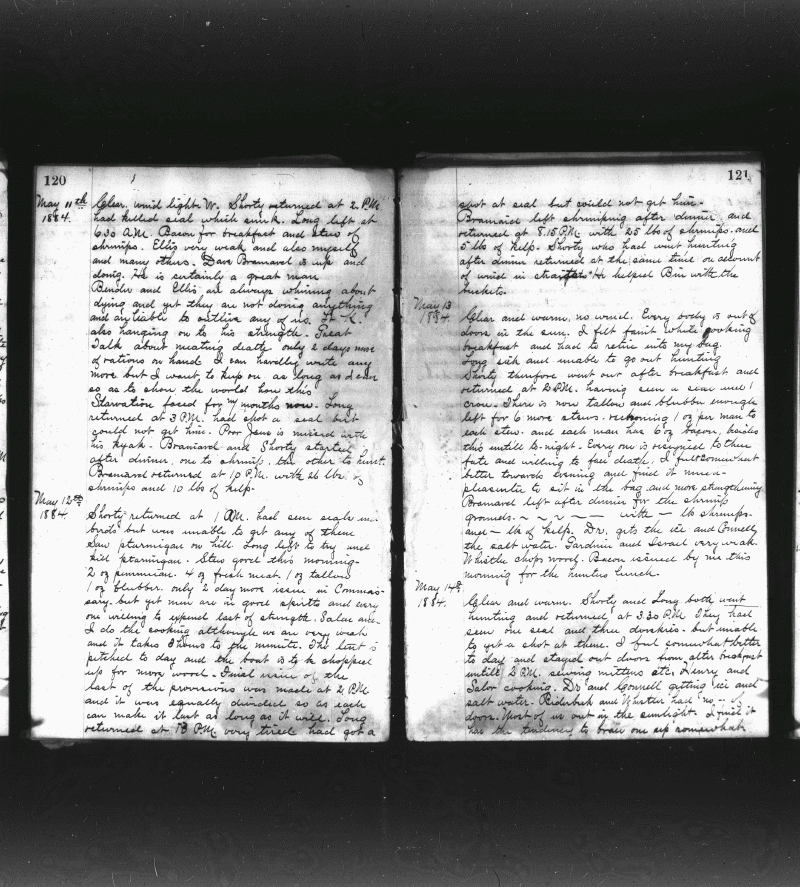 120
May 11th
1884.
Clear, wind light W. Shorty returned at 2. P.M.
had killed seal which sunk. Long left at
6 30 A.M. Bacon for breakfast and stew of
shrimps. Ellis very weak and also myself
and many others. Dave Bramard is up and
doing. He is sertainly a great man
Bender and Ellis are always whining about
dying and yet they are not doing anything
and are liable to outlive any of us.
also hanging on to his strength. Great
Talk about meating death, only 2 days more
of rations on hand. I can hardley write any
more but I want to keep on as long as I can
so as to show the world how this
Starvation faced for months now. Long
returned at 3 P.M. had shot a seal but
could not get him. Poor Jens is missed with
his kyak. Braniard and Shorty started
after dinner, one to shrimp, the other to hunt.
Bramard returned at 10 P.M. with 26 lbs. of
shrimps and 10 lbs of kelp.
May 12th
1884.
Shorty returned at 1 A.M. had seen seals in
birds but was unable to get any of them
Saw ptarmigan on hill. Long left to try and
kill ptarmigan. Stew good this morning.
2 oz pemmican. 4 of fresh meat. 1 of tallow
1 of blubber. only 2 day more issue in Commis-
sary. but yet men are in good spirits and every
one willing to expend last of stringth. Salor and
I do the cooking although we are very weak
and it takes 2 hours to the minute. The tent is
pitched to day and the boat is to be chopped
up for more wood. Final issue of the
last of the provisions was made at 2 P.M.
and it was equally divided so as each
can make it last as long as it will. Long
returned at P.M. very tired had got a
121
shot at seal but could not get him.
Bramaid left shrimping after dinner and
returned at 8.15 P.M. with 25 lbs of shrimps. and
5 lbs of kelp. Shorty who had went hunting
after dinner returned at the same time on account
of wind in straights. He helped Bin with the
buckets.
May 13
1884.
Clear and warm, no wind. Every body is out of
doors in the sun. I felt faint while cooking
breakfast and had to retire into my bag.
Long sick and unable to go out hunting
Shorty therefore went out after breakfast and
returned at 2 P.M. having seen a seal and 1
crow. There is now tallow and blubber enough
left for 6 more stews. reckoning 1 oz per man to
each stew. and each man has 6 oz bacon, besides
this untill to-night. Every one is resigned to their
fate and willing to face death. I felt somewhat
better towards evening and find it more
pleasanter to sit in the bag and more strengthening
Bramard left after dinner for the shrimp
grounds. ~ ~ ~ ~ — with — lb shrimps.
and — lb of kelp. Dr. gets the ice and Connell
the salt water. Gardiner and Israel very weak.
Whistle chops wood. Bacon issued by me this
morning for the hunters lunch.
May 14th
1884.
Clear and warm. Shorty and Long both went
hunting and returned at 3 30 P.M. They had
seen one seal and three dovekies. but unable
to get a shot at them. I feel somewhat better
to day and stayed out doors from after breakfast
untill 2 P.M. sewing mittens etc. Henry and
Salor cooking. Dr and Connell getting ice and
salt water. Biderbick and Whisler had no
doors. Most of us out in the sunlight. I find it
has the tendency to brace one up somewhat